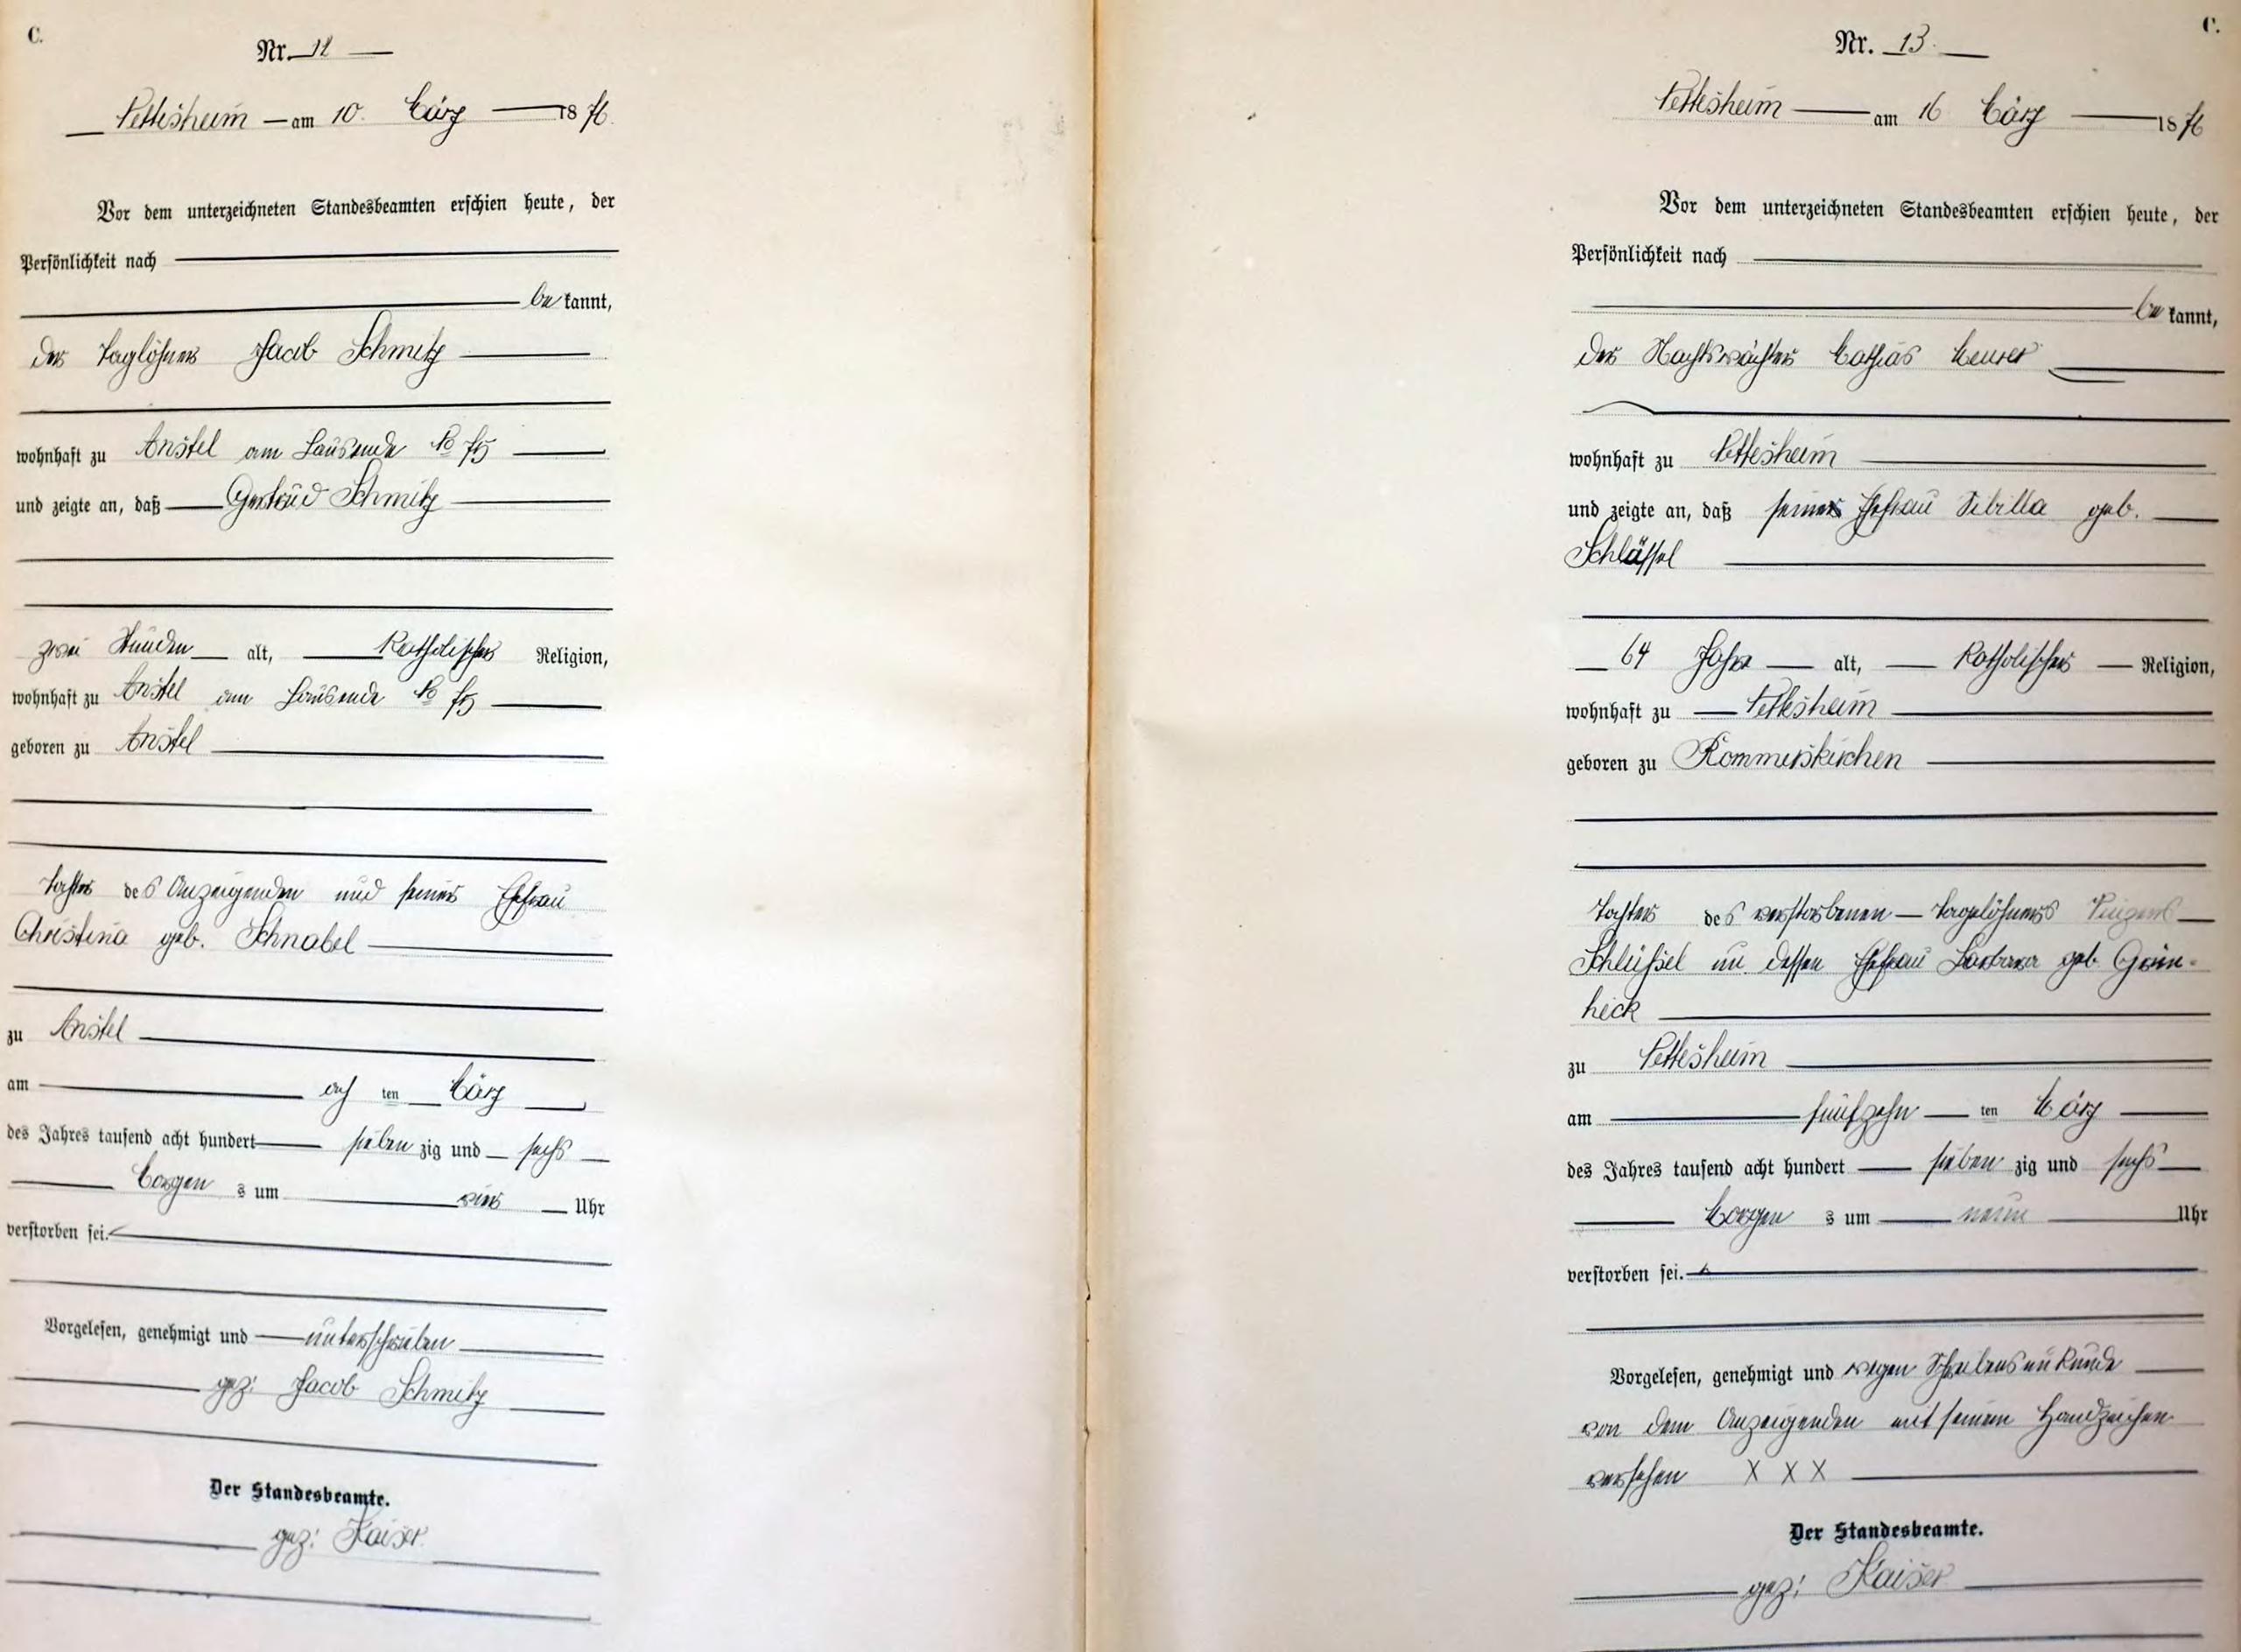 C.
Nr. 12
Nettesheim am 10. März 1876.
Vor dem unterzeichneten Standesbeamten erschien heute, der
Persönlichkeit nach
bekannt,
der Taglöhner Jacob Schmitz
wohnhaft zu Anstel am No 75
und zeigte an, daß Gertrud Schmitz
zwei Stunden alt, Katholischer Religion,
wohnhaft zu Anstel am No 75
geboren zu Anstel
Tochter des Anzeigenden und seiner Ehefrau
Christina geb. Schnabel
zu Anstel
am ten März
des Jahres tausend acht hundert sieben zig und sechs
Morgen s um vier Uhr
verstorben sei.
Vorgelesen, genehmigt und unterschrieben
gez: Jacob Schmitz
Der Standesbeamte.
gez: Kaiser
C.
Nr. 13.
Nettesheim am 16 März 1876
Vor dem unterzeichneten Standesbeamten erschien heute, der
Persönlichkeit nach
bekannt,
der Nachtswächter Mathias Meurer
wohnhaft zu Nettesheim
und zeigte an, daß seine Ehefrau Sibilla geb.
Schlüssel
64 Jahre alt, Katholischer Religion,
wohnhaft zu Nettesheim
geboren zu Rommerskirchen
Tochter des verstorbenen Tagelöhners
Schlüssel u. dessen Ehefrau Barbara geb. Grün-
heck
zu Nettesheim
am fünfzehn ten März
des Jahres tausend acht hundert sieben zig und sechs
Morgen s um neun Uhr
verstorben sei.
Vorgelesen, genehmigt und wegen Schreibensunkunde
von dem Anzeigenden mit seinem Handzeichen
versehen X X X
Der Standesbeamte.
gez: Kaiser